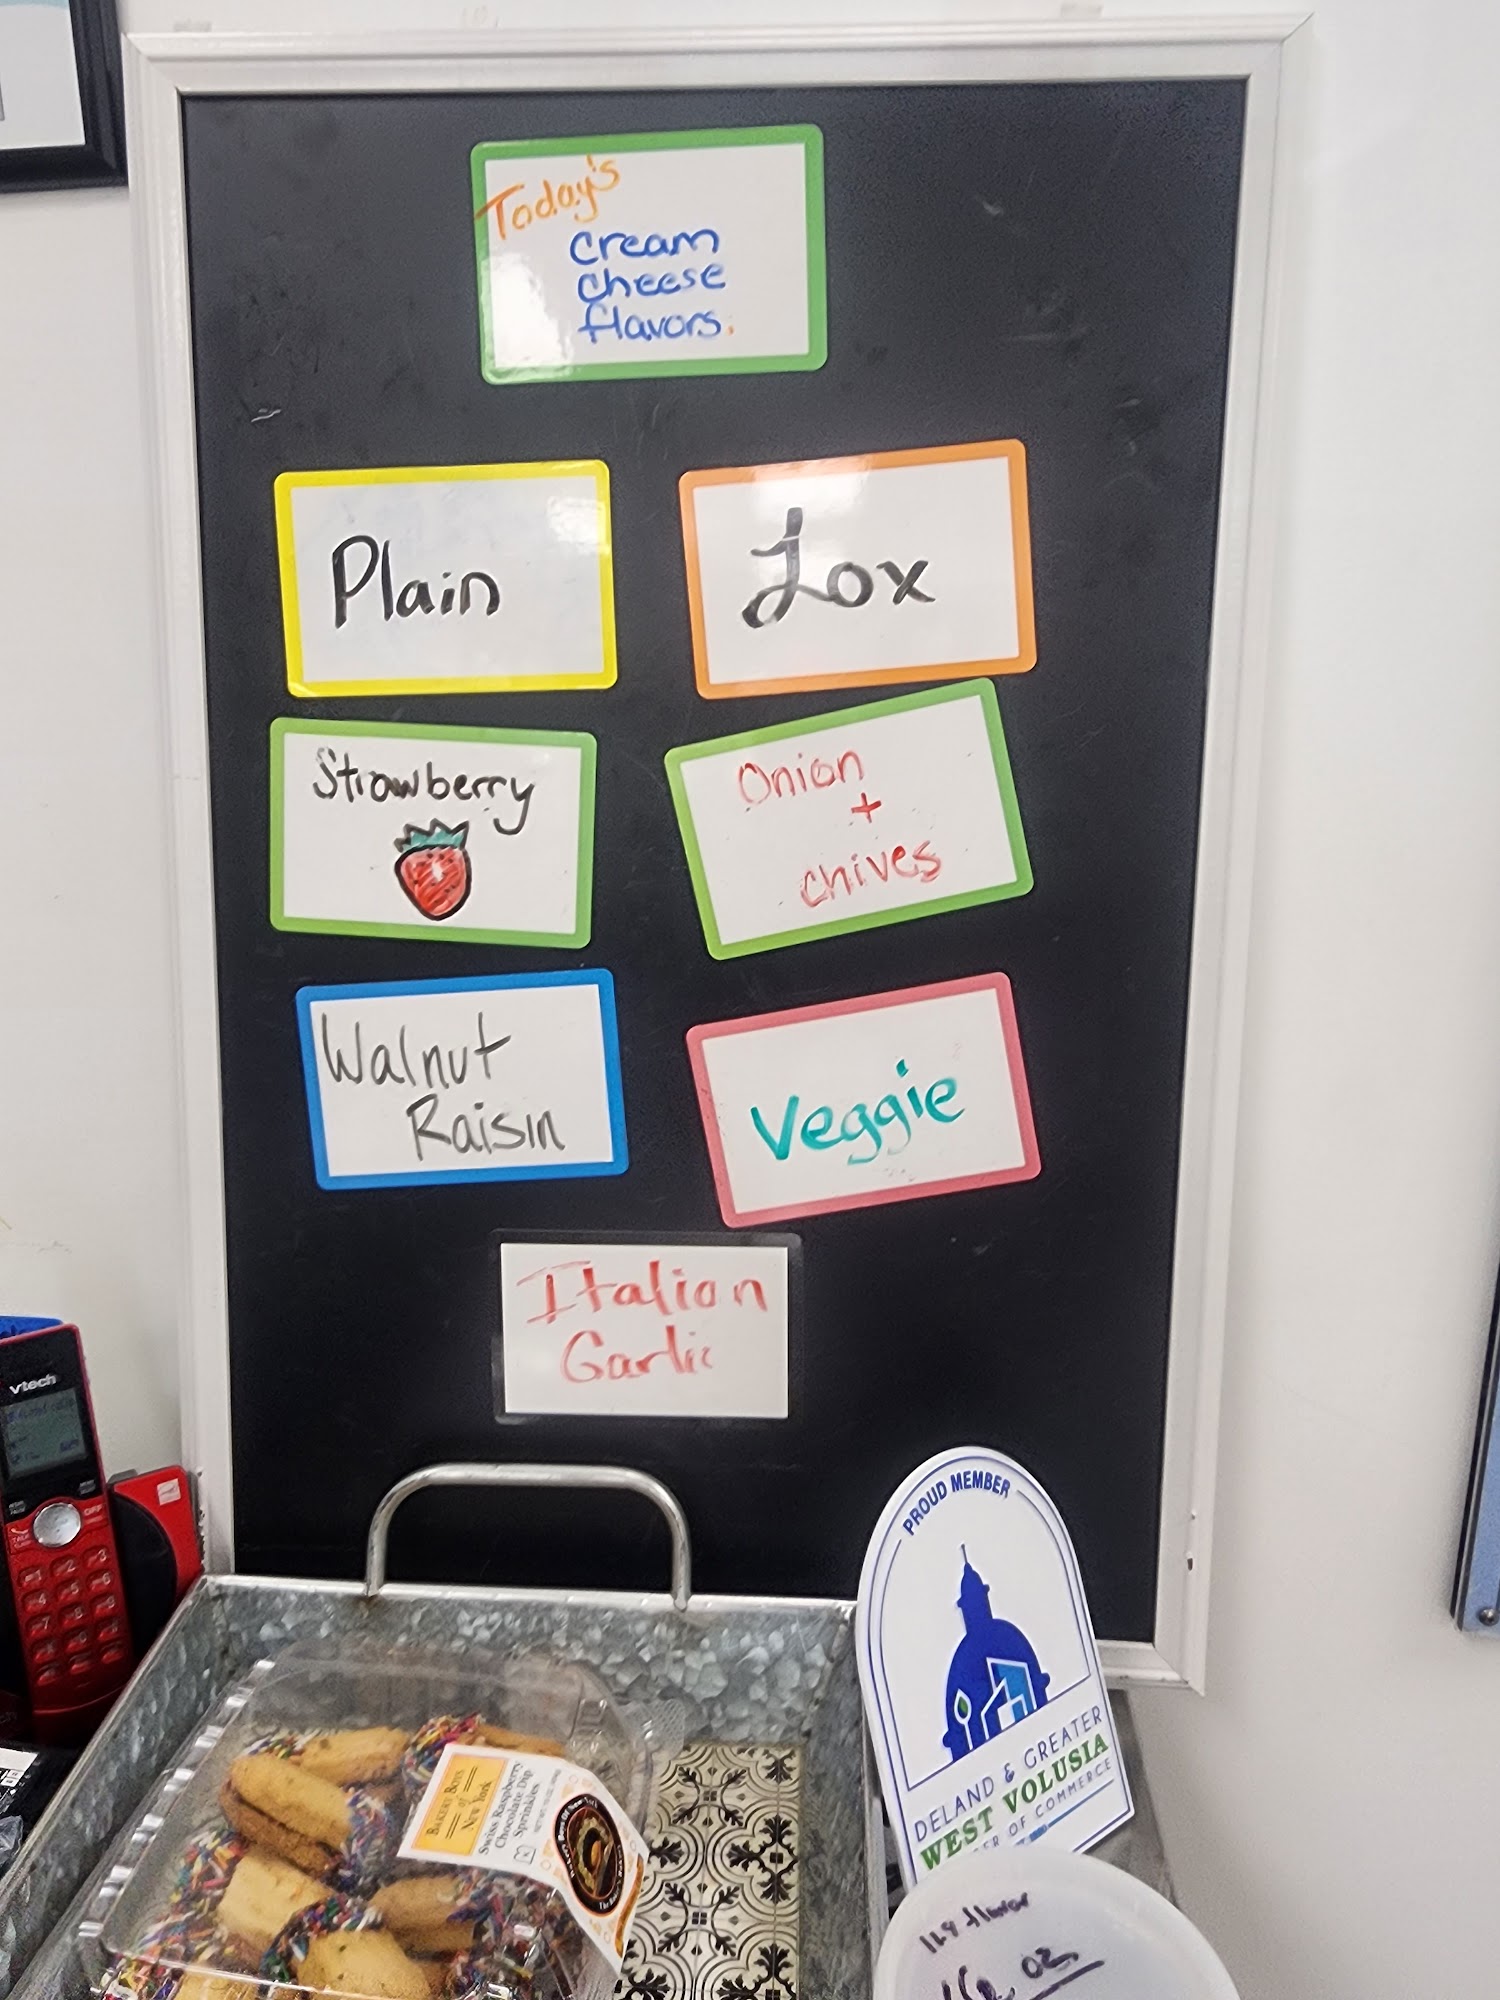 Today's
cream
cheese
flavors.
Plain
Lox
Strawberry
Onion
+
chives
Walnut
Raisin
Veggie
Italian
Garlic
vtech
PROUD MEMBER
DELAND & GREATER
WEST VOLUSIA
ER OF COMMERCE
BAKERY BOYS
of
NEW YORK
Swiss Raspberry
Chocolate Dip
Sprinkles
flavor
oz.